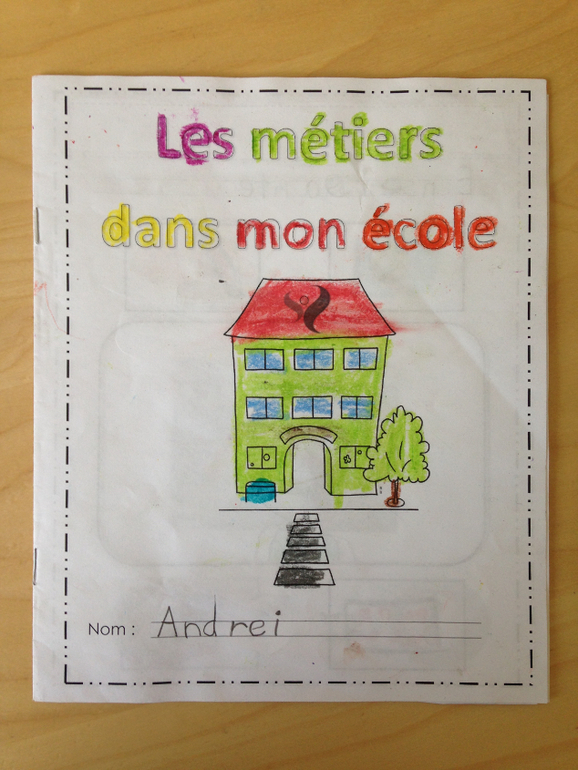 Les métiers
dans mon école
Nom : Andrei